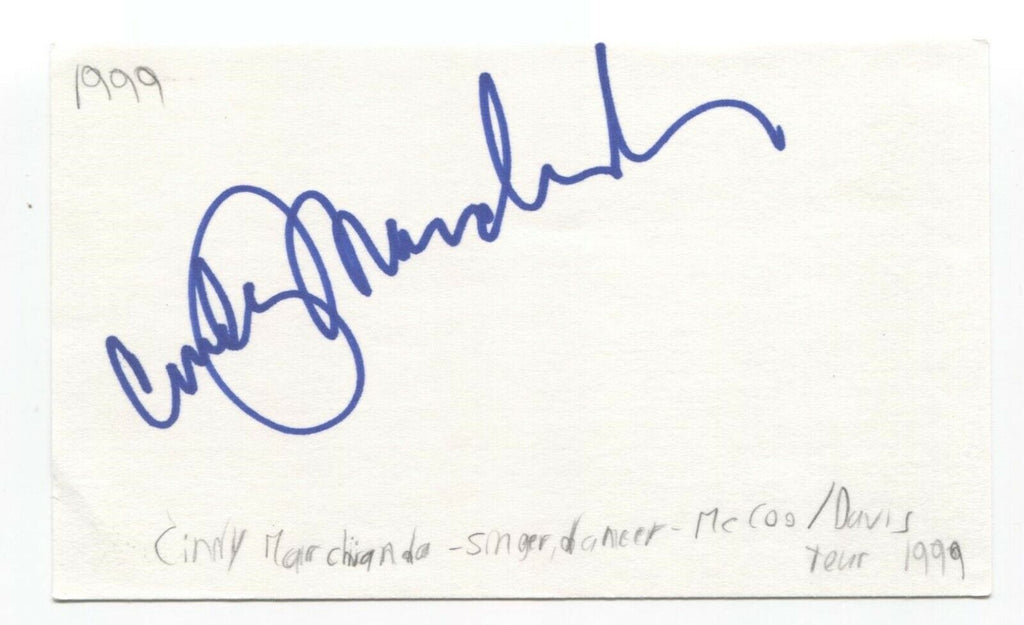 1999
Cindy Marchianda
Cindy Marchianda - singer, dancer - McCoo / Davis
Tour 1999